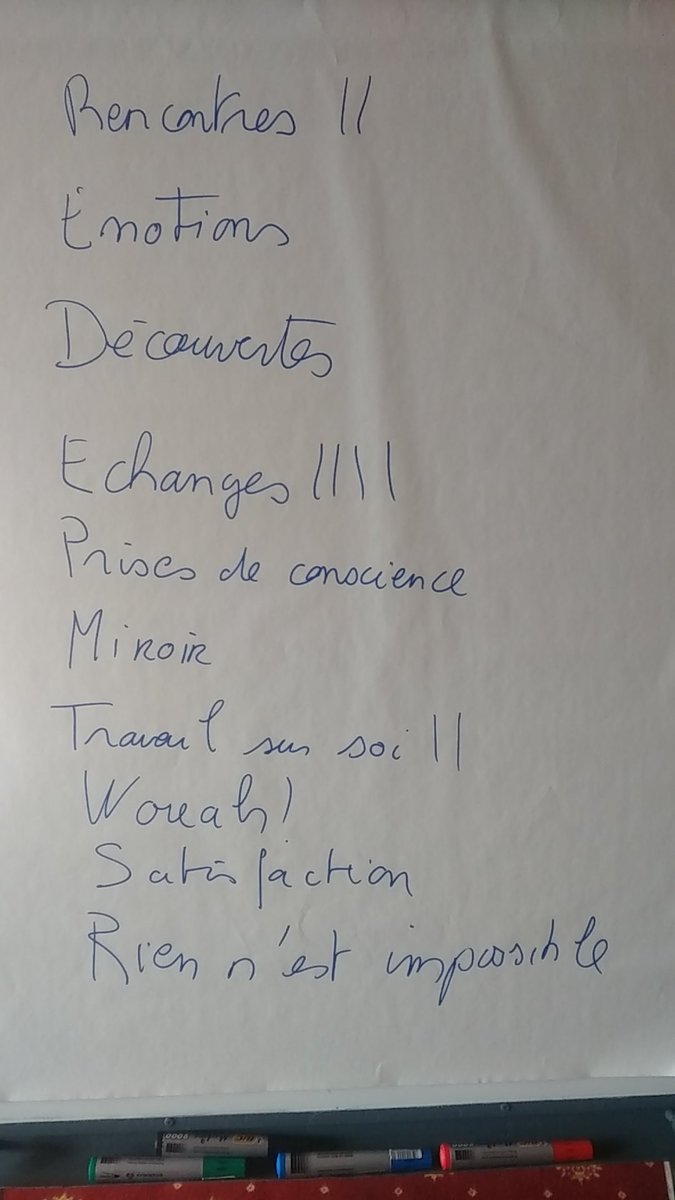 Rencontres ||
Émotions
Découvertes
Echanges ||||
Prises de conscience
Miroir
Travail sur soi ||
Woueah!
Satisfaction
Rien n'est impossible